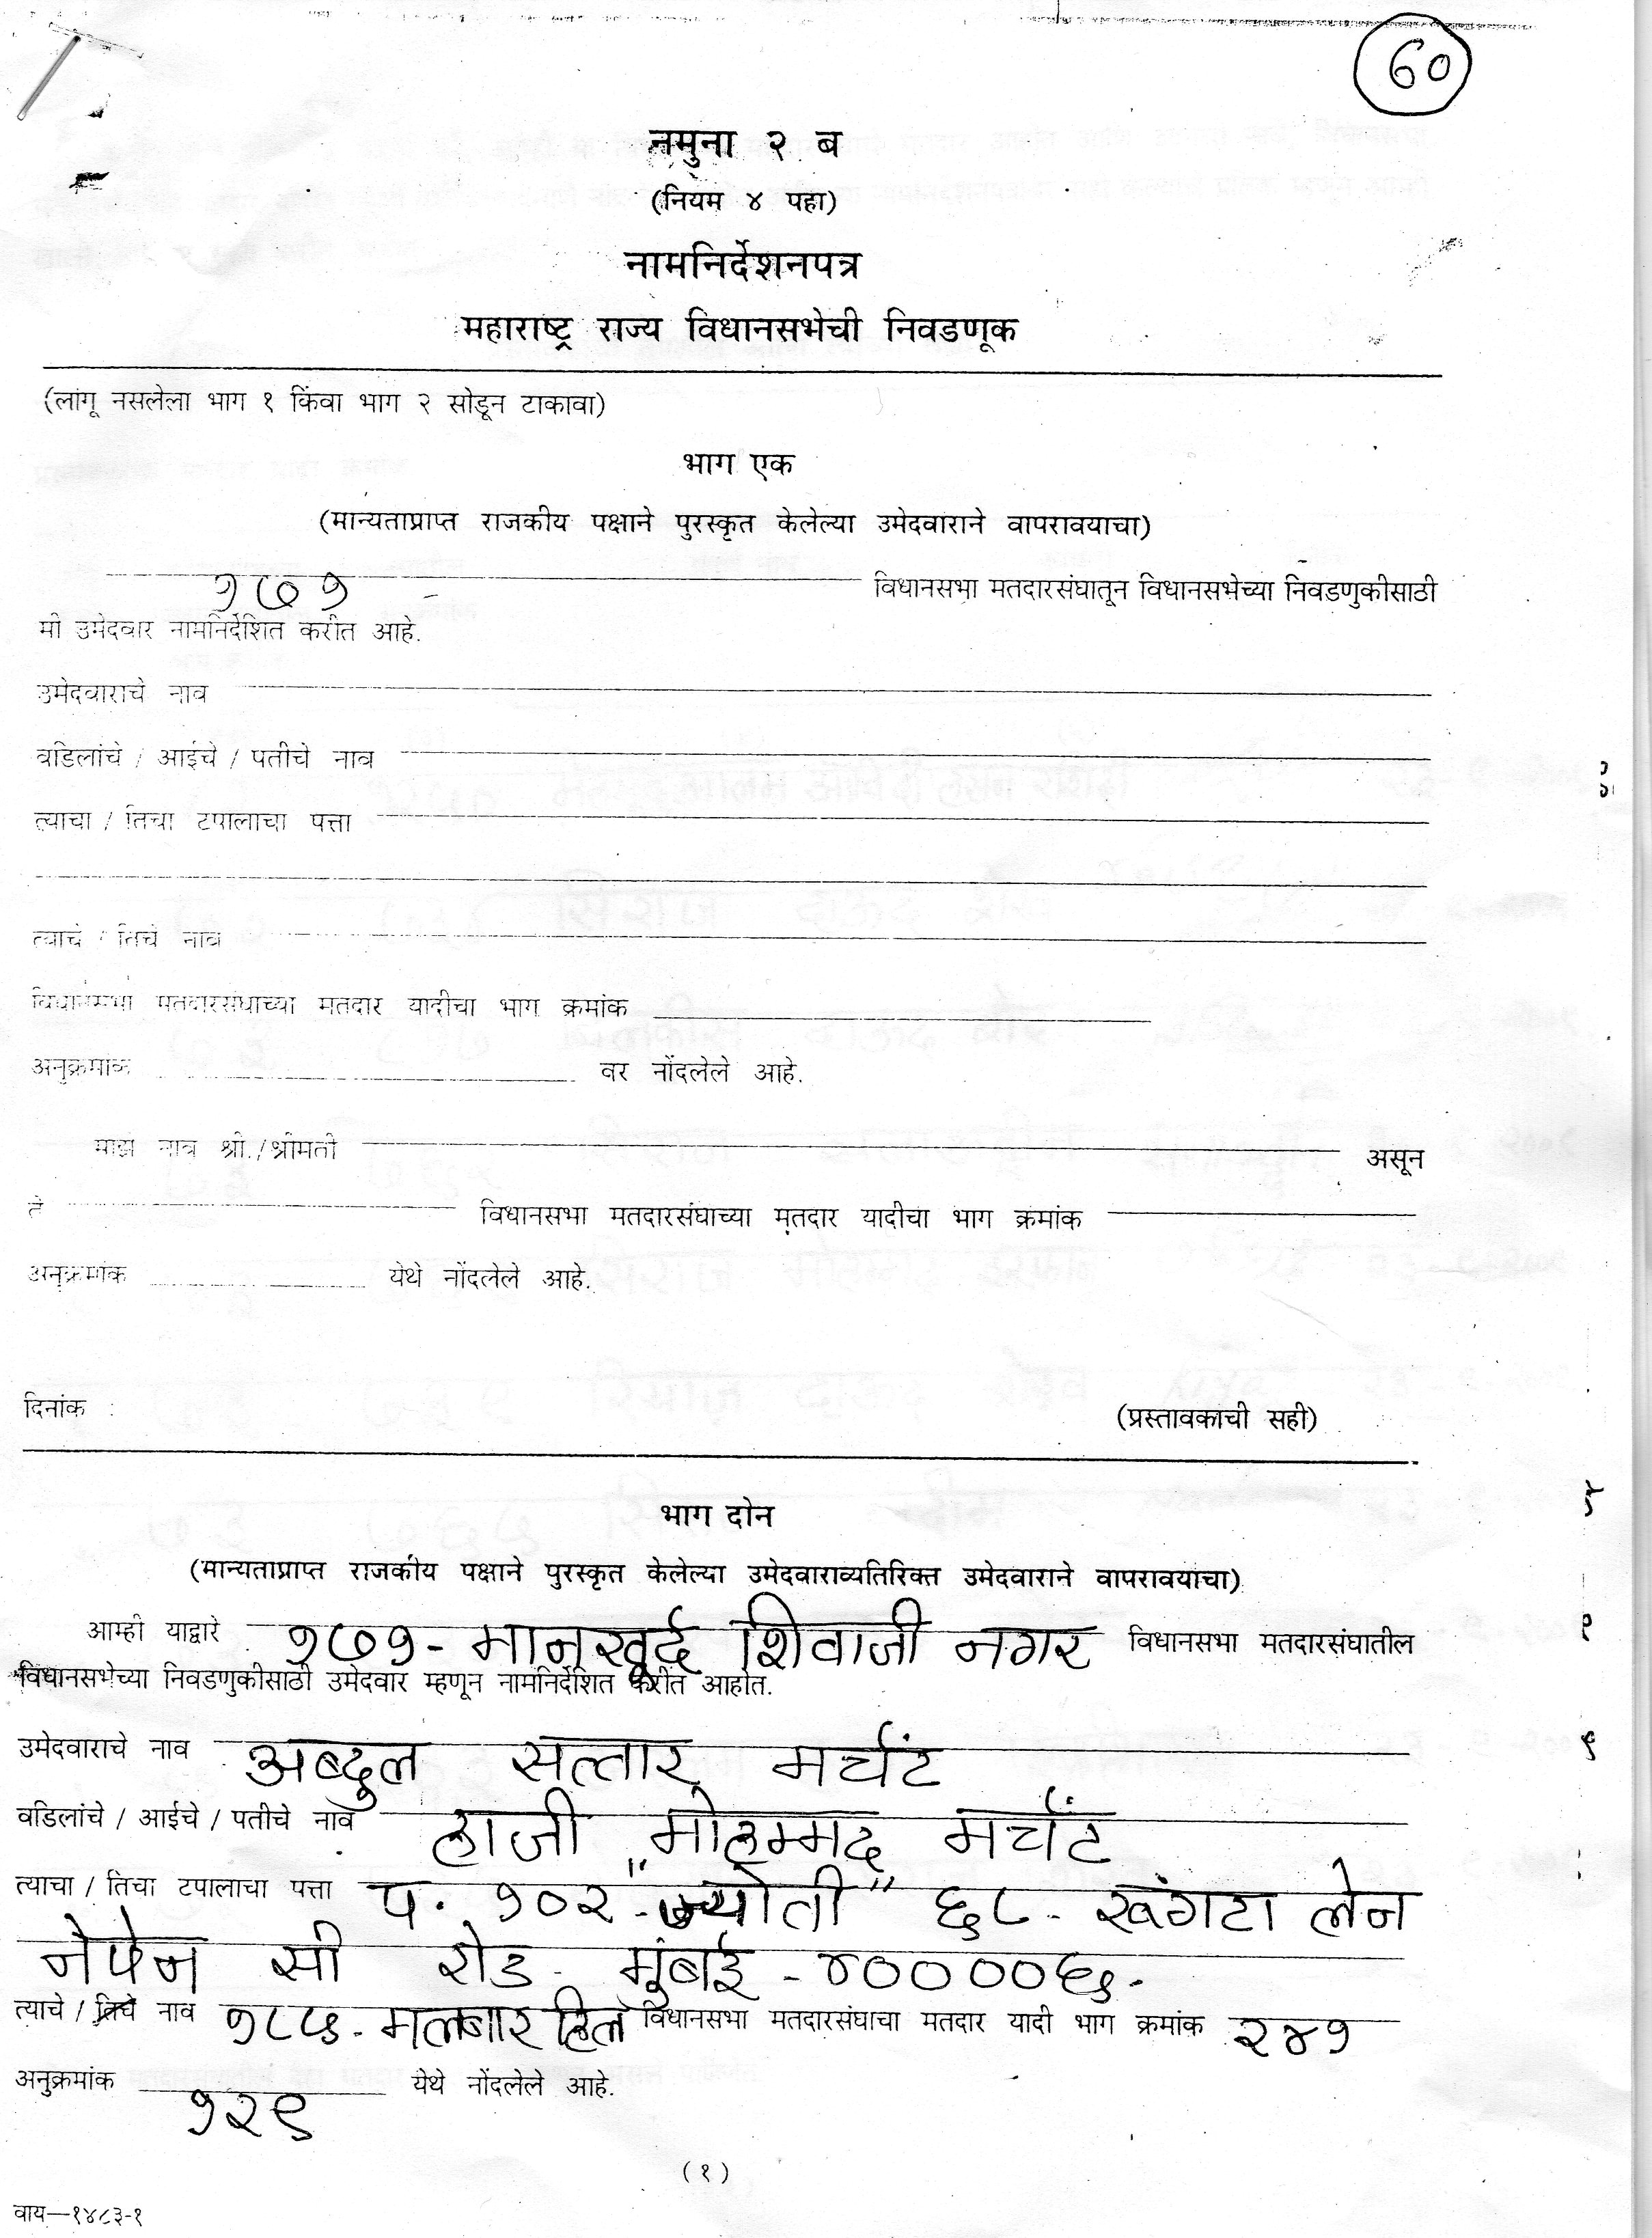 60
नमुना २ ब
(नियम ४ पहा)
नामनिर्देशनपत्र
महाराष्ट्र राज्य विधानसभेची निवडणूक
(लागू नसलेला भाग १ किंवा भाग २ सोडून टाकावा)
भाग एक
(मान्यताप्राप्त राजकीय पक्षाने पुरस्कृत केलेल्या उमेदवाराने वापरावयाचा)
१७१ - विधानसभा मतदारसंघातून विधानसभेच्या निवडणुकीसाठी
मी उमेदवार नामनिर्देशित करीत आहे.
उमेदवाराचे नाव
वडिलांचे / आईचे / पतीचे नाव
त्याचा / तिचा टपालाचा पत्ता
त्याचे / तिचे नाव
विधानसभा मतदारसंघाच्या मतदार यादीचा भाग क्रमांक
अनुक्रमांक वर नोंदलेले आहे.
माझे नाव श्री./श्रीमती असून
ते विधानसभा मतदारसंघाच्या मतदार यादीचा भाग क्रमांक
अनुक्रमांक येथे नोंदलेले आहे.
दिनांक : (प्रस्तावकाची सही)
भाग दोन
(मान्यताप्राप्त राजकीय पक्षाने पुरस्कृत केलेल्या उमेदवाराव्यतिरिक्त उमेदवाराने वापरावयाचा)
आम्ही याद्वारे १७१ - मानखूर्द शिवाजी नगर विधानसभा मतदारसंघातील
विधानसभेच्या निवडणुकीसाठी उमेदवार म्हणून नामनिर्देशित करीत आहोत.
उमेदवाराचे नाव अब्दुल सत्तार मर्चंट
वडिलांचे / आईचे / पतीचे नाव हाजी मोहम्मद मर्चंट
त्याचा / तिचा टपालाचा पत्ता प. १०२ - "ज्योती" ६८ - रूंगटा लेन
नेपेन सी रोड - मुंबई - ४००००६ -
त्याचे / तिचे नाव १८५ - मलबार हिल विधानसभा मतदारसंघाचा मतदार यादी भाग क्रमांक २४१
अनुक्रमांक १२९ येथे नोंदलेले आहे.
(१)
वाय—१४८३-१